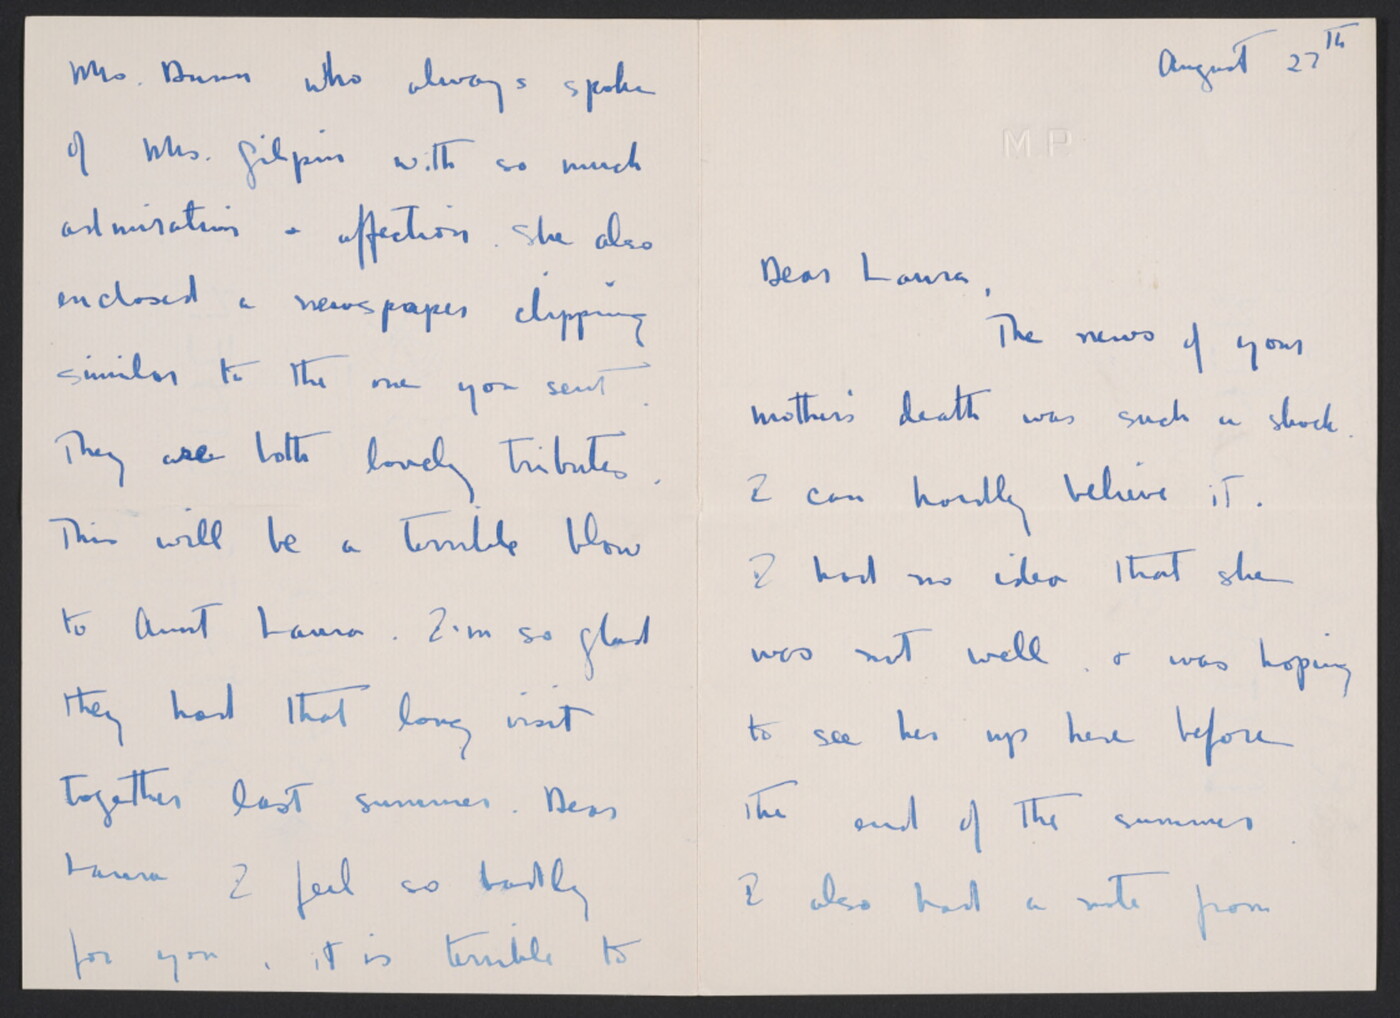 August 27th
M.P.
Dear Laura,
The news of your
mother's death was such a shock.
I can hardly believe it.
I had no idea that she
was not well. & was hoping
to see her up here before
the end of the summer.
I also had a note from
Mrs. Dunn who always spoke
of Mrs. Gilpin with so much
admiration & affection. She also
enclosed a newspaper clipping
similar to the one you sent.
They are both lovely tributes.
This will be a terrible blow
to Aunt Laura. I'm so glad
they had that long visit
together last summer. Dear
Laura I feel so badly
for you, it is terrible to